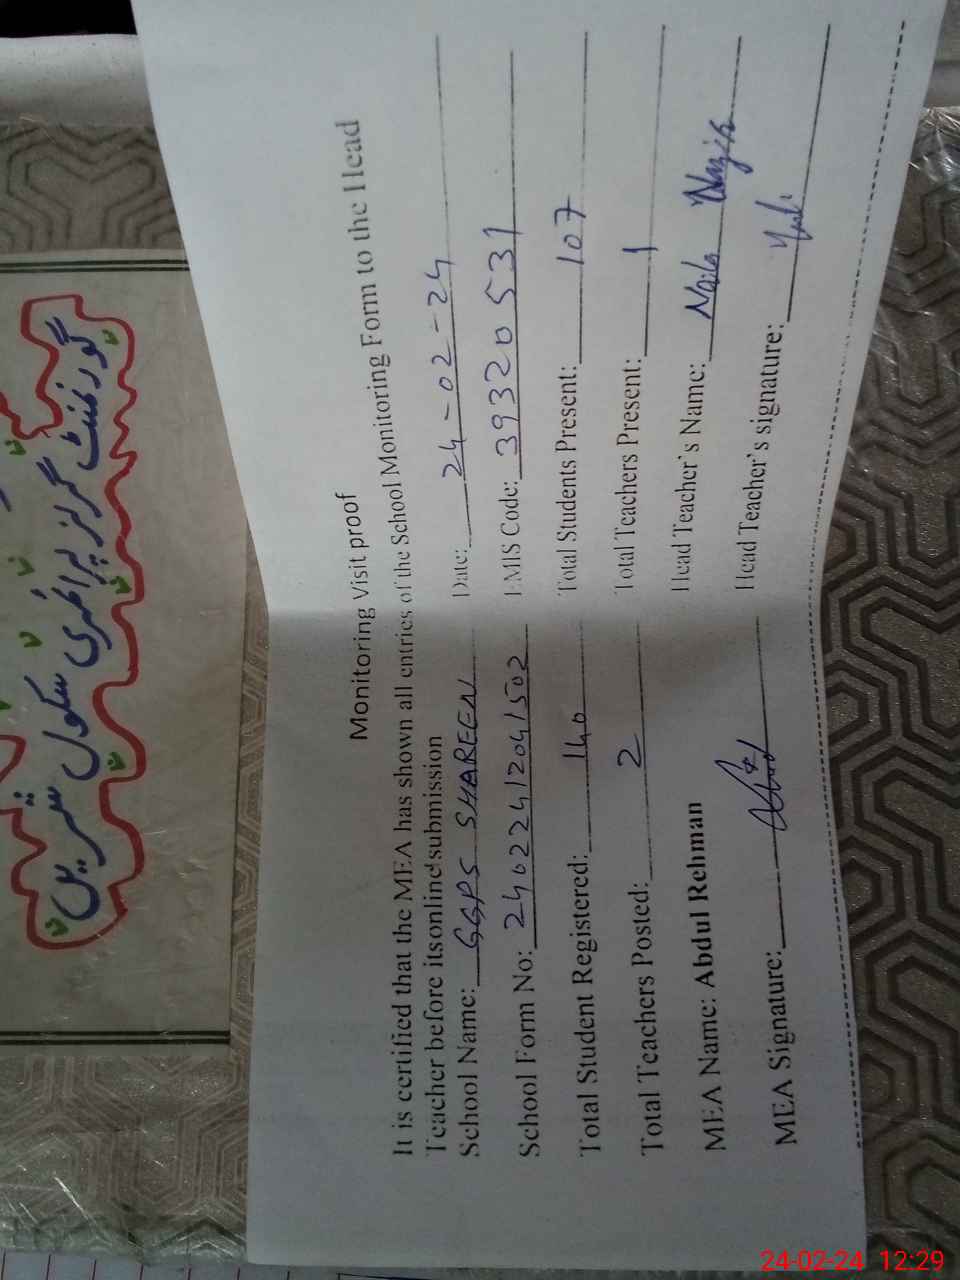 گورنمنٹ گرلز پرائمری سکول شریں
Monitoring Visit proof
It is certified that the MEA has shown all entries of the School Monitoring Form to the Head
Teacher before its online submission
School Name: GGPS SHAREEN Date: 24-02-24
School Form No: 24022412041502 EMIS Code: 39320531
Total Student Registered: 140 Total Students Present: 107
Total Teachers Posted: 2 Total Teachers Present: 1
MEA Name: Abdul Rehman Head Teacher's Name: Naila Nazir
MEA Signature: Head Teacher's signature:
24-02-24 12:29